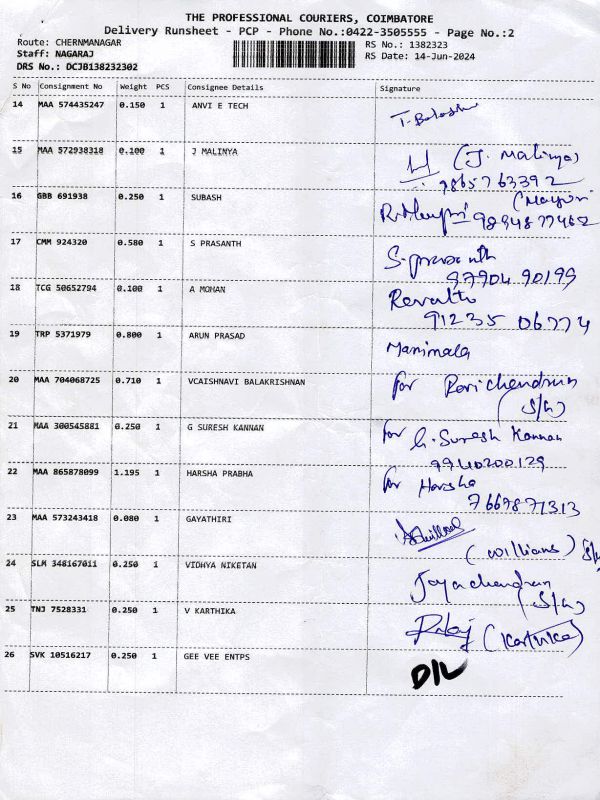 THE PROFESSIONAL COURIERS, COIMBATORE
Delivery Runsheet - PCP - Phone No.:0422-3505555 - Page No.:2
Route: CHERNMANAGAR RS No.: 1382323
Staff: NAGARAJ RS Date: 14-Jun-2024
DRS No.: DCJB138232302
S No Consignment No Weight PCS Consignee Details Signature
14 MAA 574435247 0.150 1 ANVI E TECH
15 MAA 572938318 0.100 1 J MALINYA (J. Malinya)
9865763392
16 GBB 691938 0.250 1 SUBASH (Mayuri
9894877462
17 CMM 924320 0.580 1 S PRASANTH S. prasanth
97904 90199
18 TCG 50652794 0.100 1 A MOHAN Revathi
91235 06774
19 TRP 5371979 0.800 1 ARUN PRASAD Manimala
20 MAA 704068725 0.710 1 VCAISHNAVI BALAKRISHNAN for Ravichandran
(S/G)
21 MAA 300545881 0.250 1 G SURESH KANNAN for G. Suresh Kannan
9940200129
22 MAA 865878099 1.195 1 HARSHA PRABHA for Harsha
7667871313
23 MAA 573243418 0.080 1 GAYATHIRI
(Willians) S/G
24 SLM 348167011 0.250 1 VIDHYA NIKETAN Jayachandran
(S/G)
25 TNJ 7528331 0.250 1 V KARTHIKA (Karthika)
26 SVK 10516217 0.250 1 GEE VEE ENTPS D/L